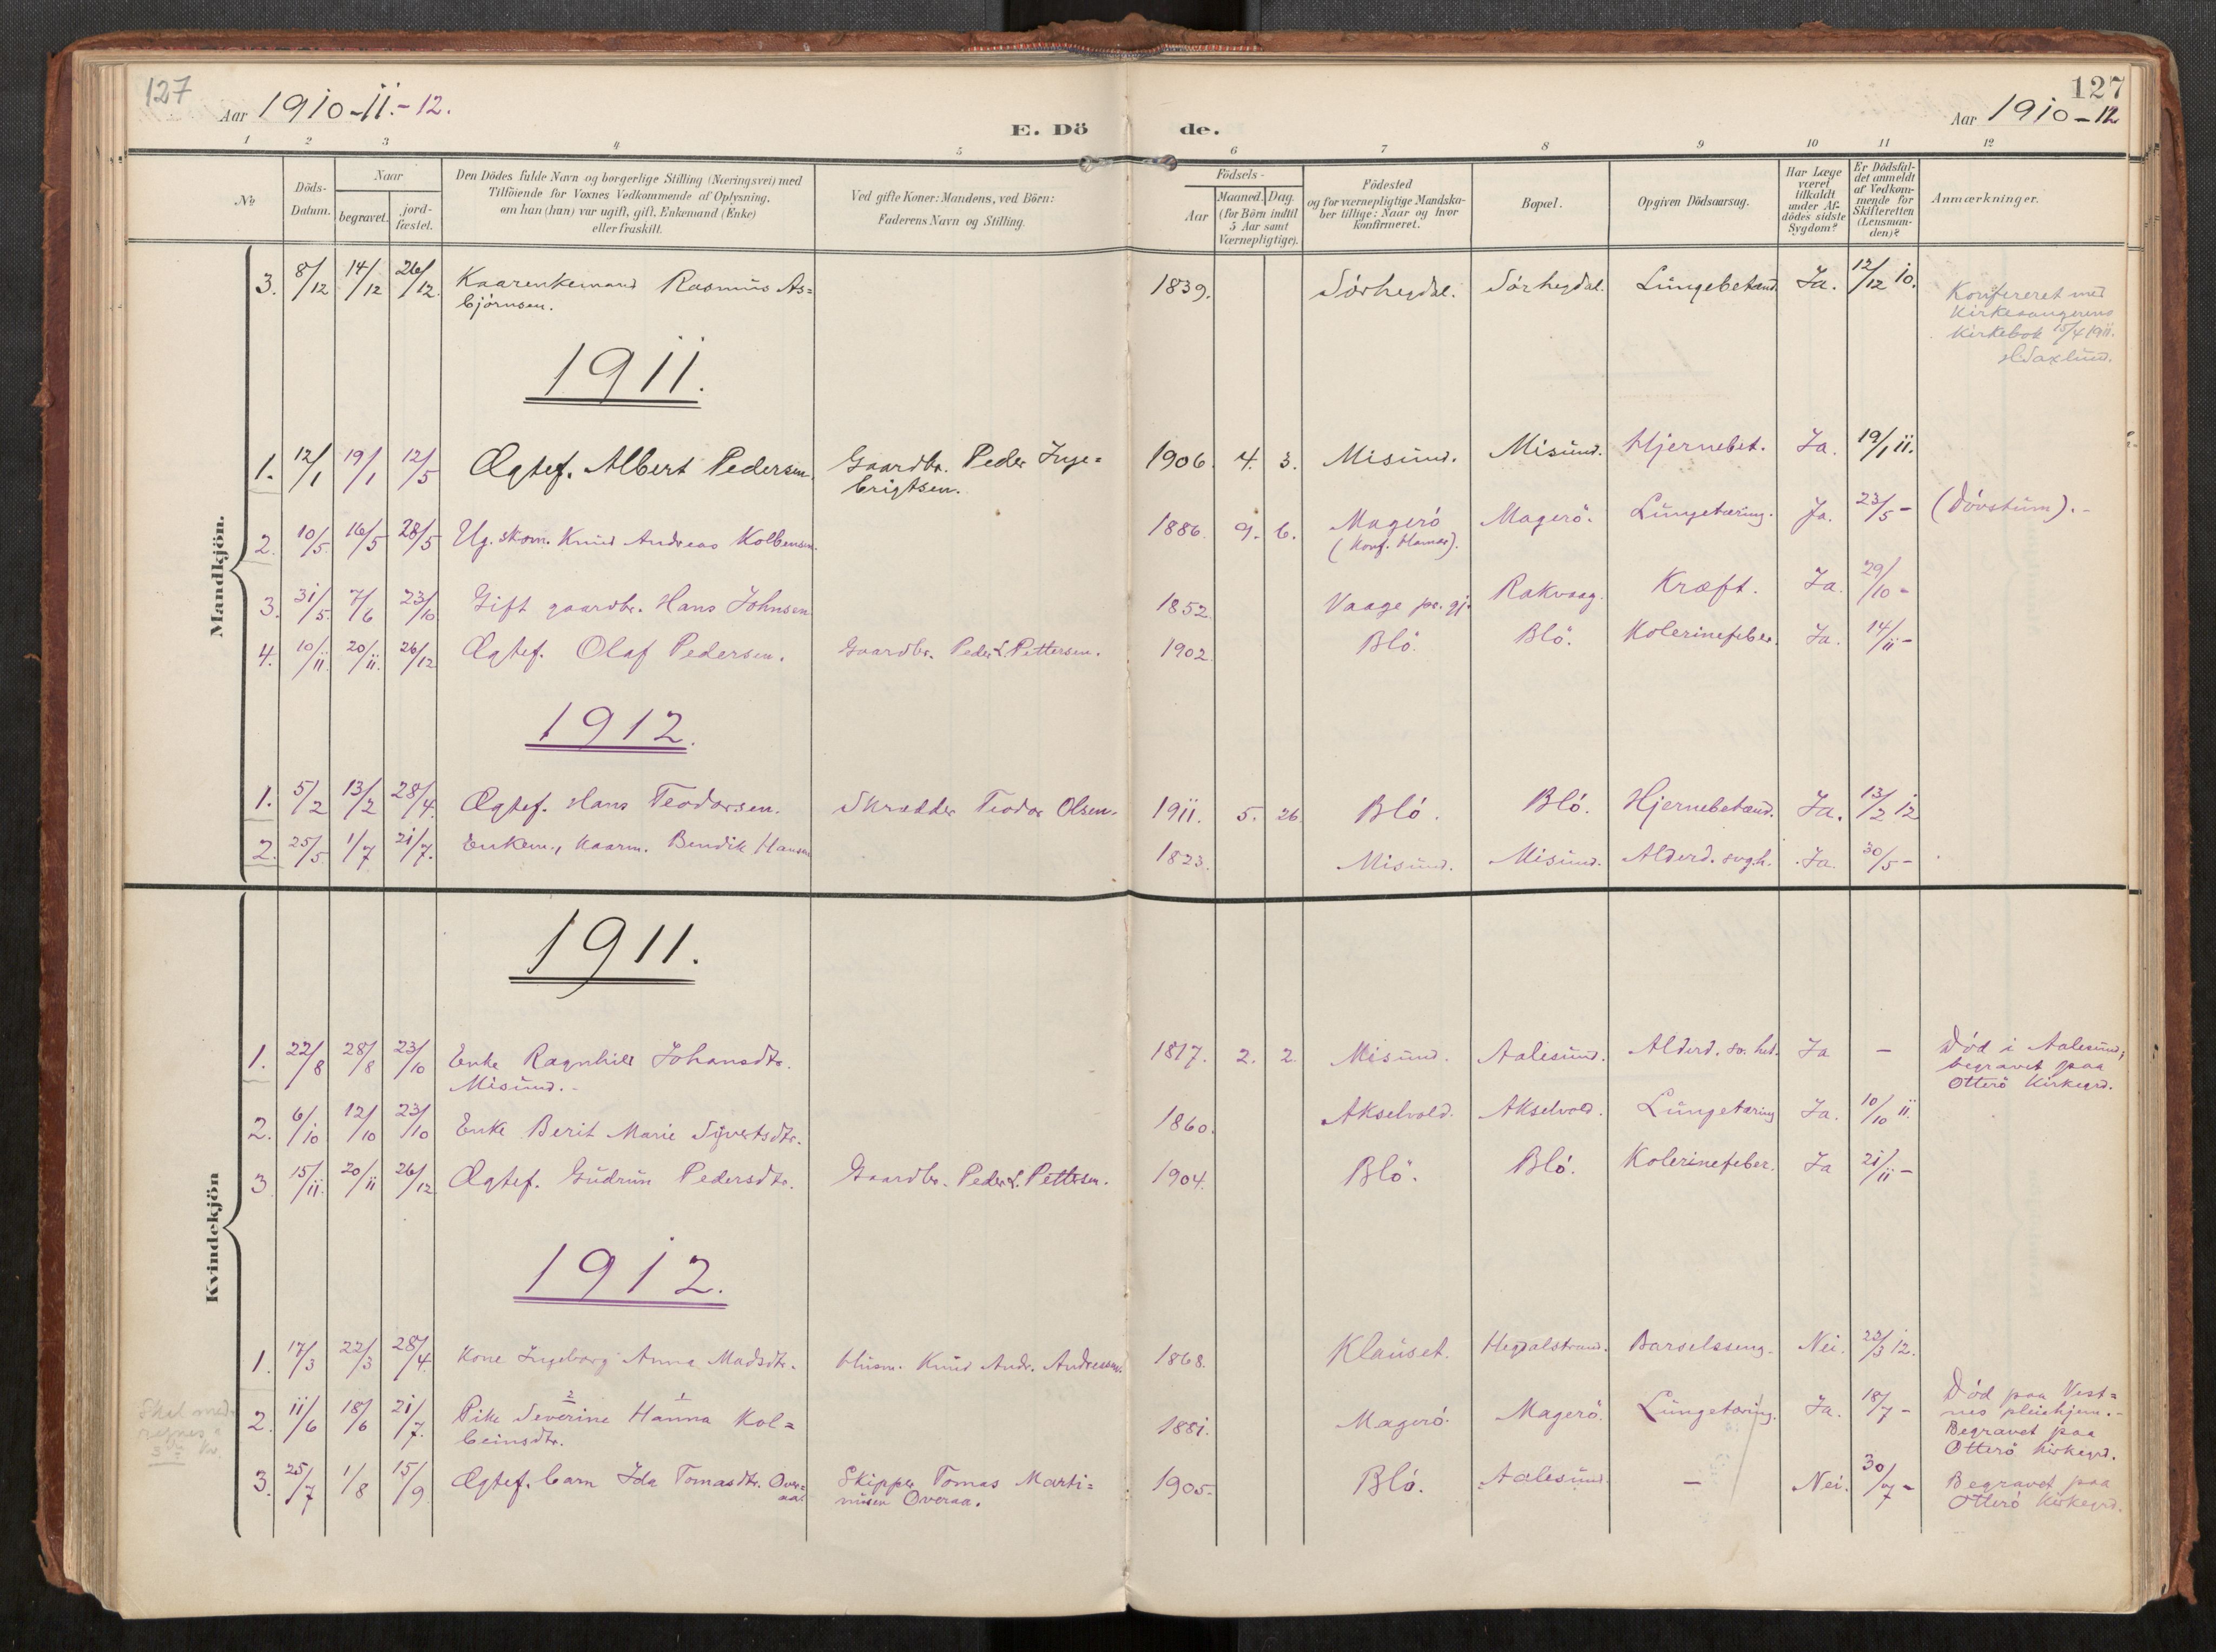 127
127
Aar 1910-11-12.
E. Dö de.
Aar 1910-12
1 2 3 4 5 6 7 8 9 10 11 12
No
Döds-Datum.
Naar
begravet.
jord-fæstet.
Den Dödes fulde Navn og borgerlige Stilling (Næringsvei) med
Tilföiende for Voxnes Vedkommende af Oplysning,
om han (hun) var ugift, gift, Enkemand (Enke)
eller fraskilt.
Ved gifte Koner: Mandens, ved Börn:
Faderens Navn og Stilling.
Födsels-
Aar
Maaned. Dag.
(for Börn indtil
5 Aar samt
Værnepligtige).
Födested
og for værnepligtige Mandska-
ber tillige: Naar og hvor
konfirmeret.
Bopæl.
Opgiven Dödsaarsag.
Har Læge
været
tilkaldt
under Af-
dödes sidste
Sygdom?
Er Dödsfal-
det anmeldt
af Vedkom-
mende for
Skifteretten
(Lensman-
den)?
Anmærkninger.
Mandkjön.
3. 8/12 14/12 26/12. Kaarenkemand Rasmus As= 1839. Sörhegdal. Sörhegdal. Lungebetænd. Ja. 12/12 10.
björnsen.
Konfereret med
Kirkesangerens
Kirkebok 15/4 1911.
Saxlund.
1911.
1. 12/1 19/1 12/5 Ægtef. Albert Pedersen. Gaardbr. Peder Inge= 1906. 4. 3. Misund. Misund. Hjernebet. Ja. 19/1 11.
brigtsen.
2. 10/5 16/5 28/5 Ug. skom. Knud Andreas Kolbensen. 1886. 9. 6. Magerö Magerö. Lungetæring. Ja. 23/5 - (Dövstum).-
(Konf. Hamar).
3. 31/5. 7/6 23/10 Gift gaardbr. Hans Johnsen 1852. Vaage pr. gj. Rakvaag. Kræft. Ja. 29/10 -
4. 10/11. 20/11. 26/12 Ægtef. Olaf Pedersen. Gaardbr. Peder L. Pettersen. 1902. Blö. Blö. Kolerinefeber. Ja. 14/11 -
1912.
1. 5/2 13/2 28/4. Ægtef. Hans Teodorsen. Skrædder Teodor Olsen. 1911. 5. 26. Blö. Blö. Hjernebetænd. Ja. 13/2 12
2. 25/5. 1/7 21/7. Enkem., kaarm. Bendik Hansen 1823. Misund. Misund. Alderd. svgh. Ja. 30/5 -
Kvindekjön
1911.
1. 22/8 28/8 23/10 Enke Ragnhild Johansdtr. 1817. 2. 2. Misund. Aalesund. Alderd. sv. hed. Ja - Död i Aalesund,
Misund.-
begravet paa
Otterö Kirkegrd.
2. 6/10 12/10 23/10 Enke Berit Marie Syvertsdtr. 1860. Akselvold. Akselvold. Lungetæring Ja. 10/10 11.
3. 15/11. 20/11 26/12 Ægtef. Gudrun Pedersdtr. Gaardbr. Peder L. Pettersen. 1904. Blö. Blö. Kolerinefeber. Ja 21/11 -
1912.
1. 17/3 22/3 28/4. Kone Ingeborg Anna Madsdtr. Husm. Knud Andr. Andreassen. 1868. Klauset. Hegdalstrand. Barselsseng. Nei. 22/3 12.
Skal med-
regnes
2. 11/6 18/6 21/7. Pike Severine Hanna Kol= 1881. Magerö. Magerö. Lungetæring. Ja. 18/7 - Död paa Vest=
2 1
beinsdtr.
nes pleiehjem.-
Begravet paa
Otterö Kirkegrd.
3. 25/7 1/8 15/9 Ægtef. barn Ida Tomasdtr. Over= Skipper Tomas Marti= 1905. Blö. Aalesund. - Nei. 30/7 - Begravet paa
aa.
nusen Overaa.
Otterö Kirkegrd.